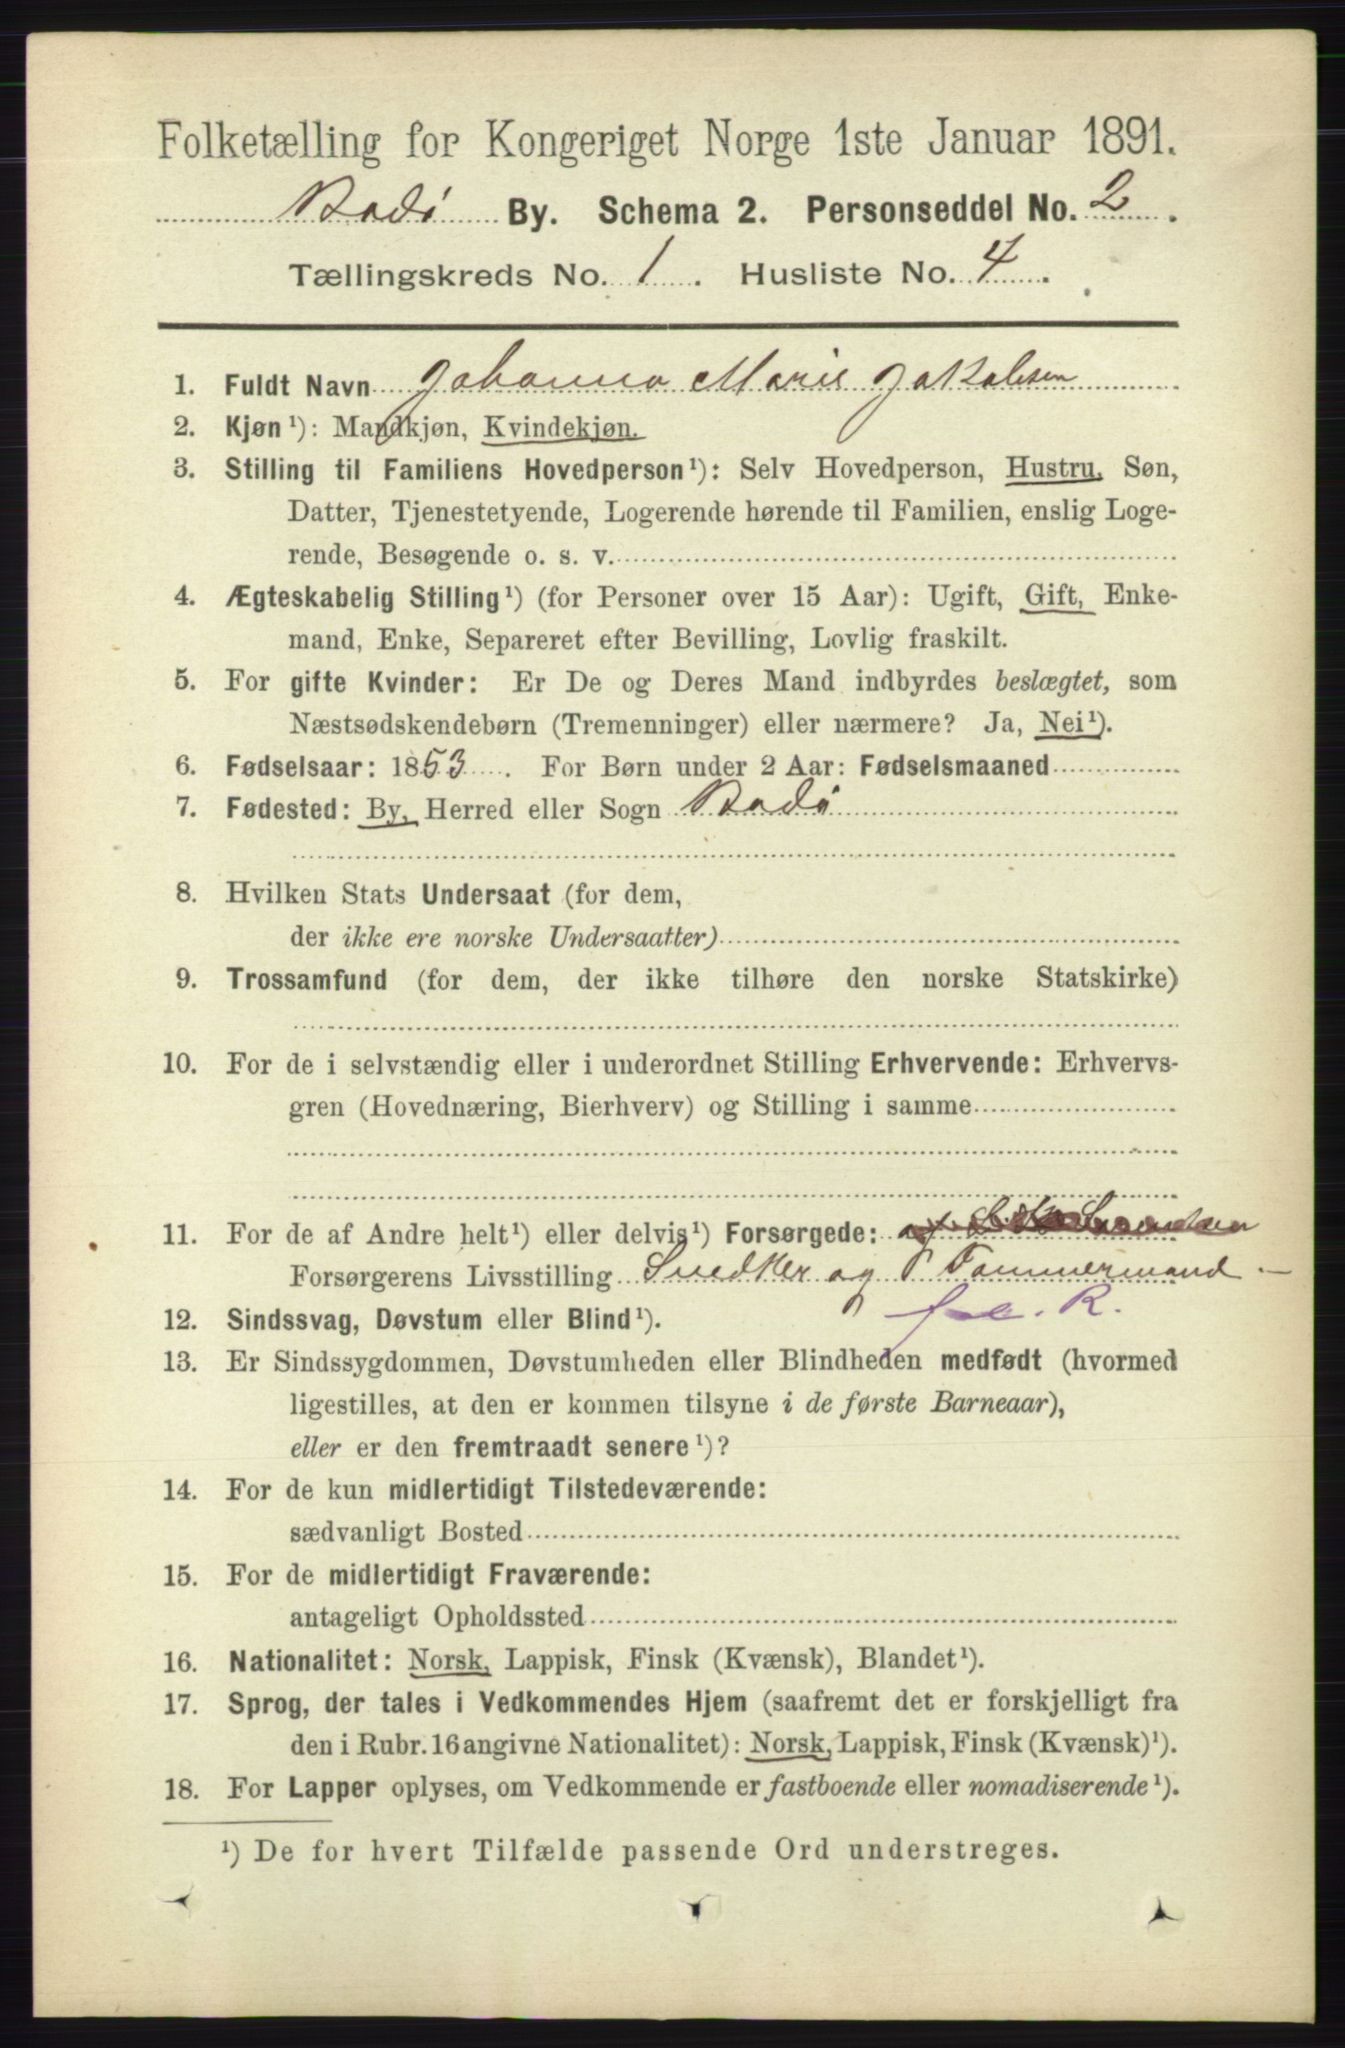 Folketælling for Kongeriget Norge 1ste Januar 1891.
Bodø By. Schema 2. Personseddel No. 2.
Tællingskreds No. 1. Husliste No. 4.
1. Fuldt Navn Johanna Marie Jakobsen
2. Kjøn¹): Mandkjøn, Kvindekjøn.
3. Stilling til Familiens Hovedperson¹): Selv Hovedperson, Hustru, Søn,
Datter, Tjenestetyende, Logerende hørende til Familien, enslig Loge-
rende, Besøgende o. s. v.
4. Ægteskabelig Stilling¹) (for Personer over 15 Aar): Ugift, Gift, Enke-
mand, Enke, Separeret efter Bevilling, Lovlig fraskilt.
5. For gifte Kvinder: Er De og Deres Mand indbyrdes beslægtet, som
Næstsødskendebørn (Tremenninger) eller nærmere? Ja, Nei¹).
6. Fødselsaar: 1853. For Børn under 2 Aar: Fødselsmaaned
7. Fødested: By, Herred eller Sogn Bodø
8. Hvilken Stats Undersaat (for dem,
der ikke ere norske Undersaatter)
9. Trossamfund (for dem, der ikke tilhøre den norske Statskirke)
10. For de i selvstændig eller i underordnet Stilling Erhvervende: Erhvervs-
gren (Hovednæring, Bierhverv) og Stilling i samme
11. For de af Andre helt¹) eller delvis¹) Forsørgede:
Forsørgerens Livsstilling Snedker og Tømmermand
12. Sindssvag, Døvstum eller Blind¹).
13. Er Sindssygdommen, Døvstumheden eller Blindheden medfødt (hvormed
ligestilles, at den er kommen tilsyne i de første Barneaar),
eller er den fremtraadt senere¹)?
14. For de kun midlertidigt Tilstedeværende:
sædvanligt Bosted
15. For de midlertidigt Fraværende:
antageligt Opholdssted
16. Nationalitet: Norsk, Lappisk, Finsk (Kvænsk), Blandet¹).
17. Sprog, der tales i Vedkommendes Hjem (saafremt det er forskjelligt fra
den i Rubr. 16 angivne Nationalitet): Norsk, Lappisk, Finsk (Kvænsk)¹).
18. For Lapper oplyses, om Vedkommende er fastboende eller nomadiserende¹).
¹) De for hvert Tilfælde passende Ord understreges.